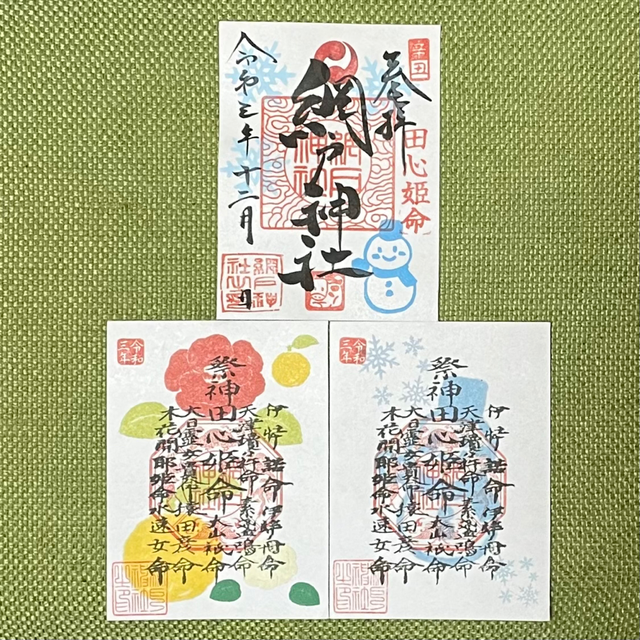 奉拝
辛丑
田心姫命
網戸神社
令和三年十二月 日
網戸神
社之印
令和
三年
祭神田心姫命
伊弉諾命伊弉冉命
天津瓊々杵命素盞鳴命
大山祇命
大日孁女貴命猿田彦命
木花開耶姫命水速女命
令和
三年
祭神田心姫命
伊弉諾命伊弉冉命
天津瓊々杵命素盞鳴命
大山祇命
大日孁女貴命猿田彦命
木花開耶姫命水速女命